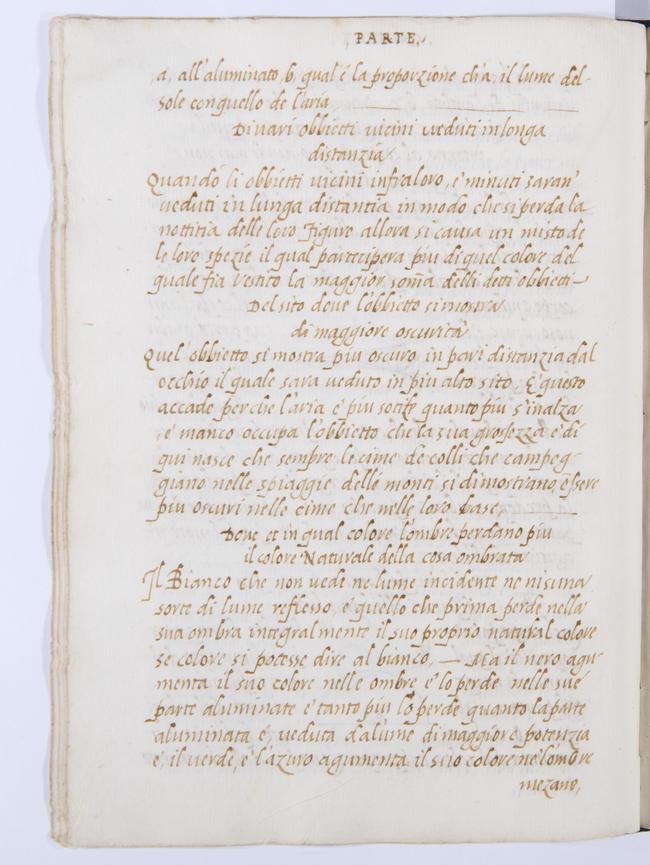 PARTE,
a, all'aluminato, b, qual'é la proporzione ch'a, il lume del-
sole conquello de l'aria
Di vari obbietti vicini veduti in longa
distanzia
Quando li obbietti vicini infraloro, e' minuti saran'
veduti in lunga distantia in modo che si perda la
nottitia delle loro figure allora si causa un misto de
le loro spezie il qual partecipera piu di quel colore del
quale fia vestito la maggior, soma delli detti obbietti-
Del sito dove l'obbietto si mostra
di maggiore oscurità
Quel'obbietto si mostra piu oscuro in pari distanzia dal
occhio il quale sara veduto in piu alto sito, E' questo
accade perche l'aria e' piu sotile quanto piu s'inalza
e' manco occupa l'obbietto che la sua grossezza e' di
qui nasce che sempre le cime de colli che campeg-
giano nelle spiaggie delle monti si dimostrano essere
piu oscuri nelle cime che nelle loro base,
Dove et in qual colore l'ombre perdano piu
il colore Naturale della cosa ombrata
Il Bianco che non vede ne lume incidente ne nisuna
sorte di lume reflesso, e' quello che prima perde nella
sua ombra integralmente il suo proprio natural colore
se colore si potesse dire al bianco, — Ma il nero agu-
menta il suo colore nelle ombre e' lo perde nelle sue
parte aluminate e' tanto piu lo perde quanto la parte
aluminata e', veduta da lume di maggiore potenzia
e', il verde, e' l'azuro agumenta il suo colore ne l'ombre
mezane,